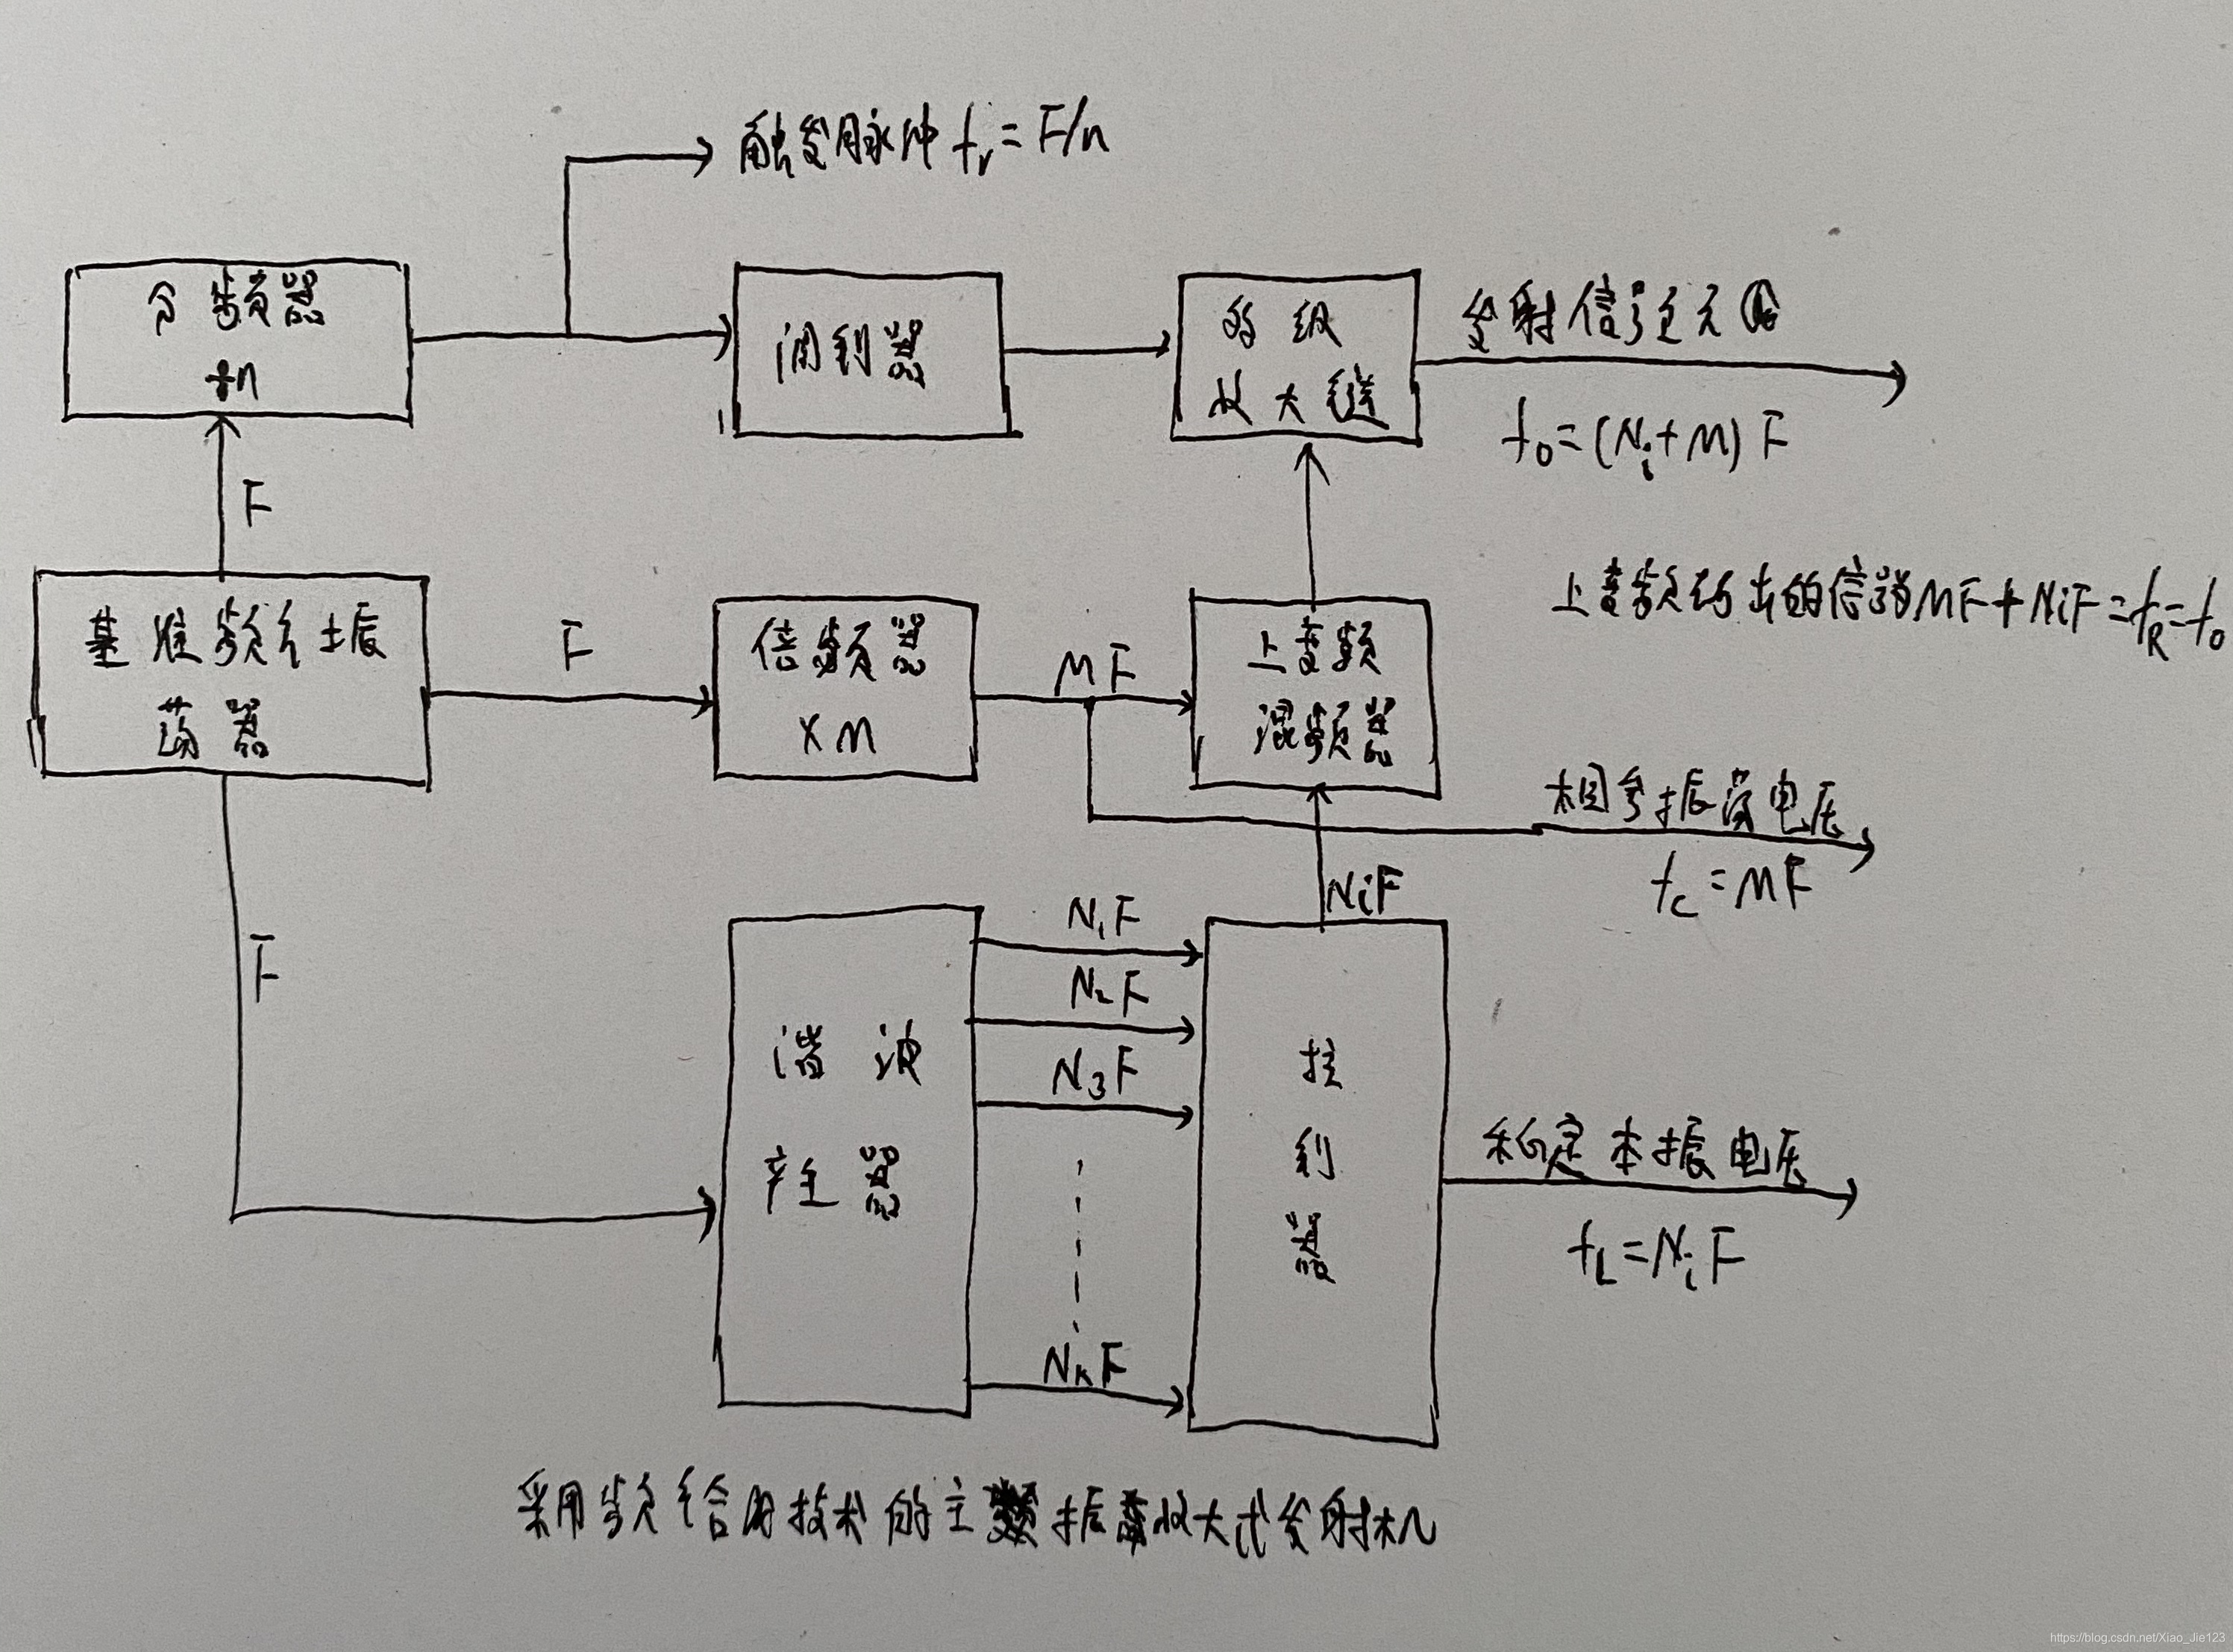 触发脉冲 fr = F/n
分频器
÷n
调制器
多级
放大链
发射信号至天线
f0 = (Ni + M) F
F
上变频后出的信号 MF + NiF = fR = f0
基准频率振
荡器
F
倍频器
×M
MF
上变频
混频器
相参振荡电压
fc = MF
NiF
F
N1F
N2F
N3F
NkF
谐波
产生器
控
制
器
稳定本振电压
fL = NiF
采用频综合的技术的主振放大式发射机
https://blog.csdn.net/Xiao_Jie123